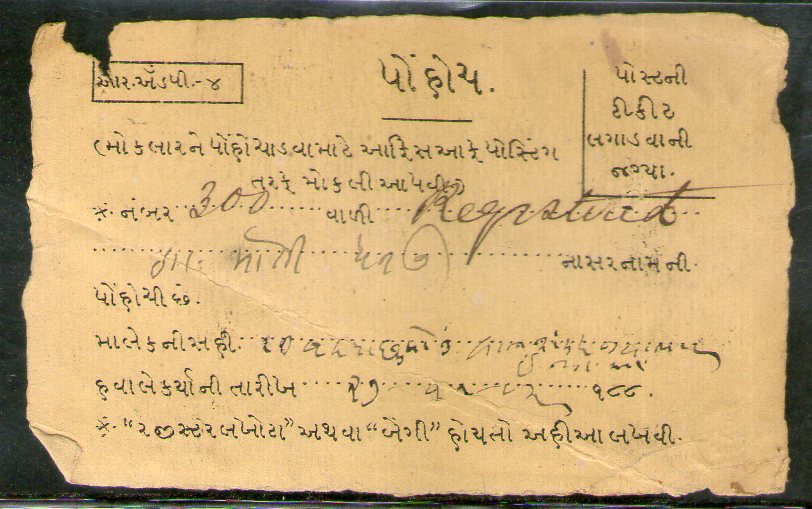 આર.ઍંડપી.-૪
પોંહોચ.
પોસ્ટની
ટીકીટ
લગાડવાની
જગ્યા.
(મોકલારને પોંહોચાડવામાટે આફિસઆફ પોસ્ટિંગ
તરફ મોકલી આપવી.)
* નંબર 300 વાળી Registered
નાસરનામની
પોંહોચી છે.
માલેકનીસહી.
હવાલેકર્યાની તારીખ ૧૮૮ .
* "રજીસ્ટરલખોટા" અથવા "બેંગી" હોયતો અહીઆ લખવી.